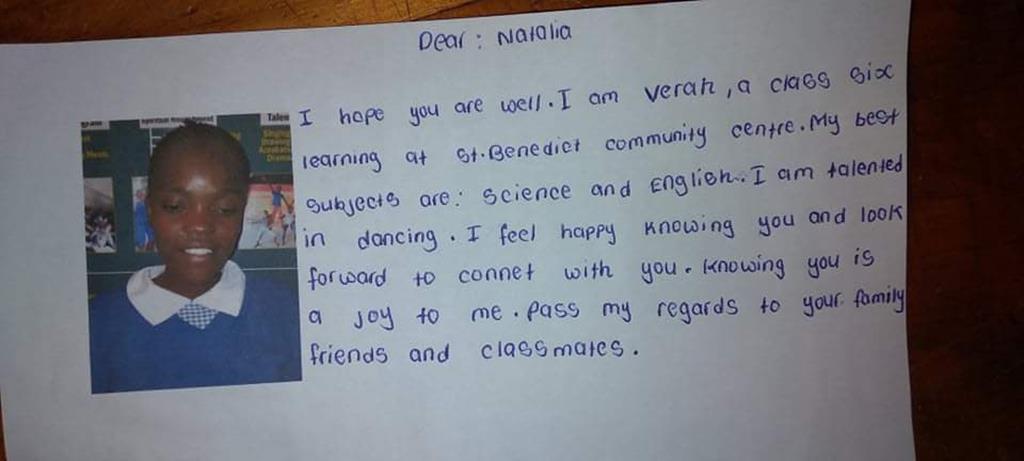 Dear : Natalia
I hope you are well. I am Verah, a class six
learning at St. Benedict community centre. My best
subjects are: Science and English. I am talented
in dancing. I feel happy knowing you and look
forward to connet with you. Knowing you is
a joy to me. Pass my regards to your family
friends and classmates.
Talen
Singing
Drawing
Acrobatic
Drama